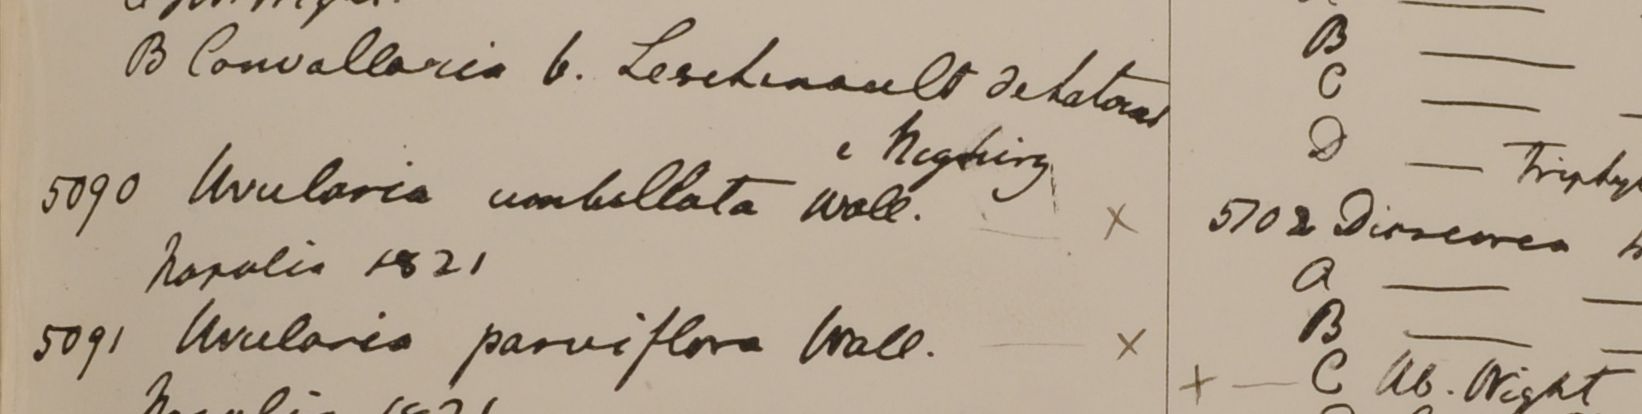 B Convallaria 6. Leschenault dehatons
e Neghirg
5090 Uvularia umbellata Wall. X
Napalia 1821
5091 Uvularia parviflora Wall. X
Napalia 1821
B
C
D Triphy
5102 Dioscorea
A
B
+ C Ab. Wight